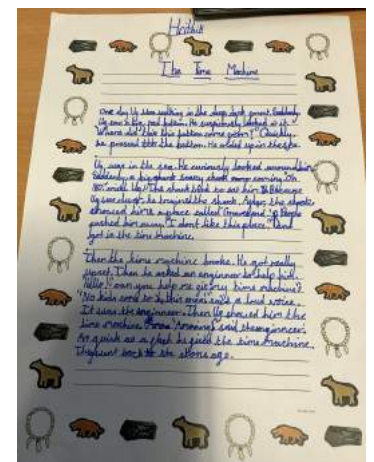 The Time Machine
One day Ug was walking in the deep dark forest. Suddenly
Ug saw a big, red button. He suspiciously looked at it.
Where did this button come from?" Quickly,
he pressed the button. He ended up in the sea.
Ug was in the sea. He curiously looked around him
Suddenly a big giant scary shark was coming. Oh
no" said Ug. The shark tried to eat him
Ug was tough he the shark. the shark
showed him a place called People
pushed him away. I don't like this place," and
got in the time machine.
Then the time machine broke. He got really
upset. Then he asked an enginner to help him.
"Hello," can you help me fix my time machine?
"No kids come to this area" said a loud voice.
It was the enginner. Then Ug showed him the
time machine. said the enginner.
As quick as a flash he the time machine.
They went back to the stone age.